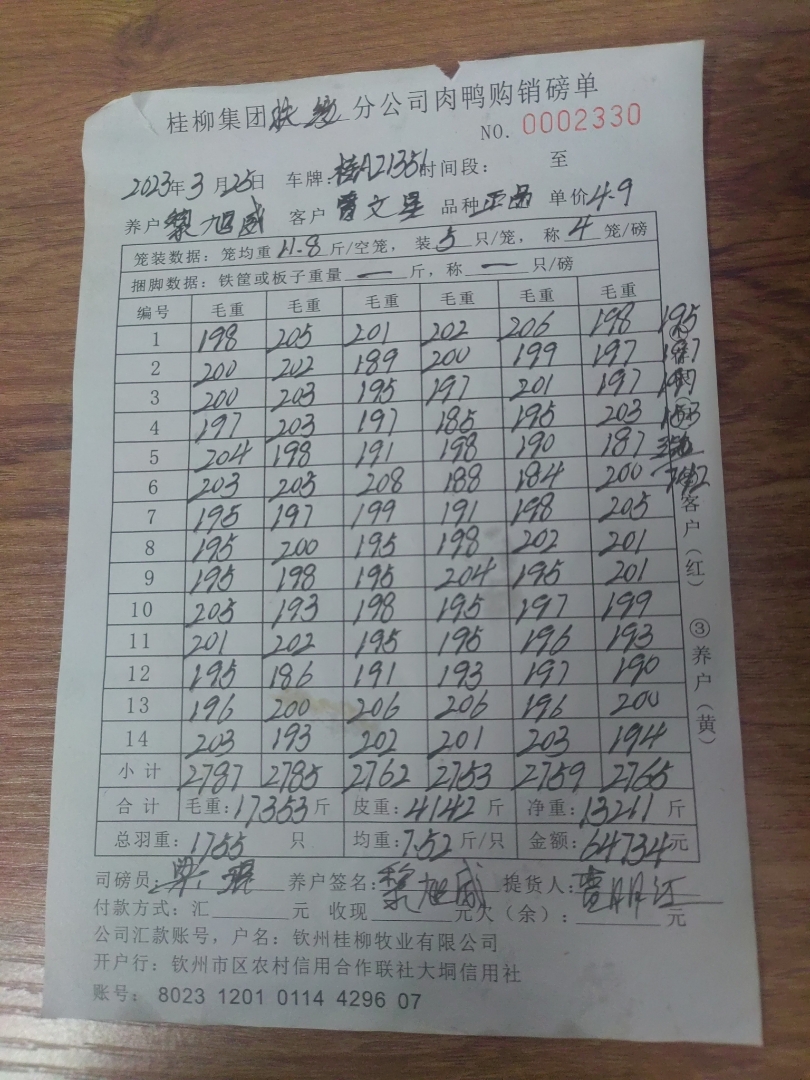 桂柳集团 分公司肉鸭购销磅单
NO. 0002330
2023年3月25日 车牌:桂A21351时间段: 至
养户黎旭威 客户曹文星 品种正品 单价4.9
笼装数据:笼均重11.8斤/空笼,装5只/笼,称4笼/磅
捆脚数据:铁筐或板子重量一斤,称一只/磅
编号 毛重 毛重 毛重 毛重 毛重 毛重
1 198 205 201 202 206 198 195
2 200 202 189 200 199 197 197
3 200 203 195 197 201 197 197
4 197 203 197 185 195 203 153
5 204 198 191 198 190 187
6 203 205 208 188 184 200 742
7 195 197 199 191 198 205
8 195 200 195 198 202 201
9 195 198 195 204 195 201
10 205 193 198 195 197 199
11 201 202 195 195 196 193
12 195 186 191 193 197 190
13 196 200 206 206 196 200
14 203 193 202 201 203 194
小计 2787 2785 2762 2753 2759 2765
合计 毛重:17353斤 皮重:4142斤 净重:13211斤
总羽重:1755只 均重:7.52斤/只 金额:64734元
司磅员: 养户签名:黎旭威 提货人:
付款方式:汇 元 收现 元欠(余): 元
公司汇款账号,户名:钦州桂柳牧业有限公司
开户行:钦州市区农村信用合作联社大垌信用社
账号:8023 1201 0114 4296 07
客户(红) ③养户(黄)